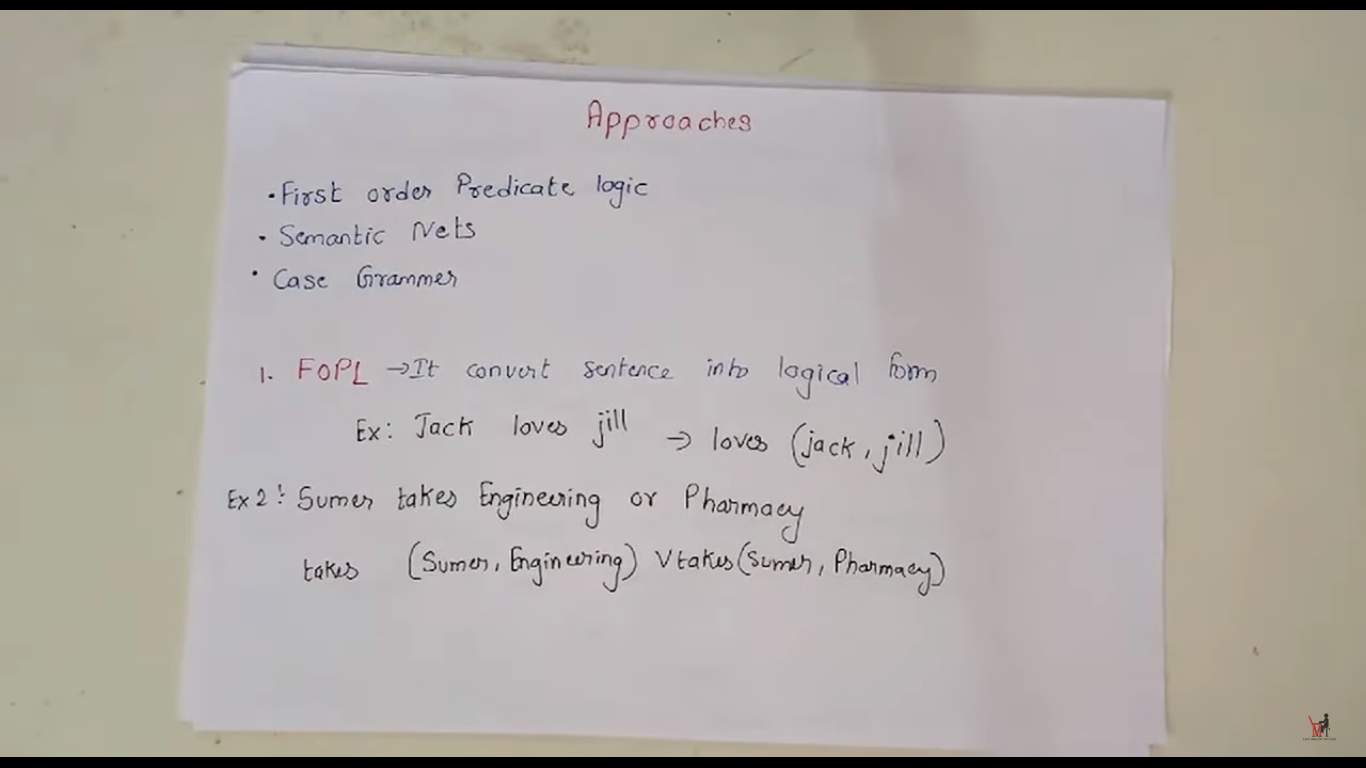 Approaches
· First order Predicate logic
· Semantic Nets
· Case Grammer
1. FOPL → It convert sentence into logical form
Ex: Jack loves jill → loves (jack, jill)
Ex 2: Sumer takes Engineering or Pharmacy
takes (Sumer, Engineering) V takes (Sumer, Pharmacy)